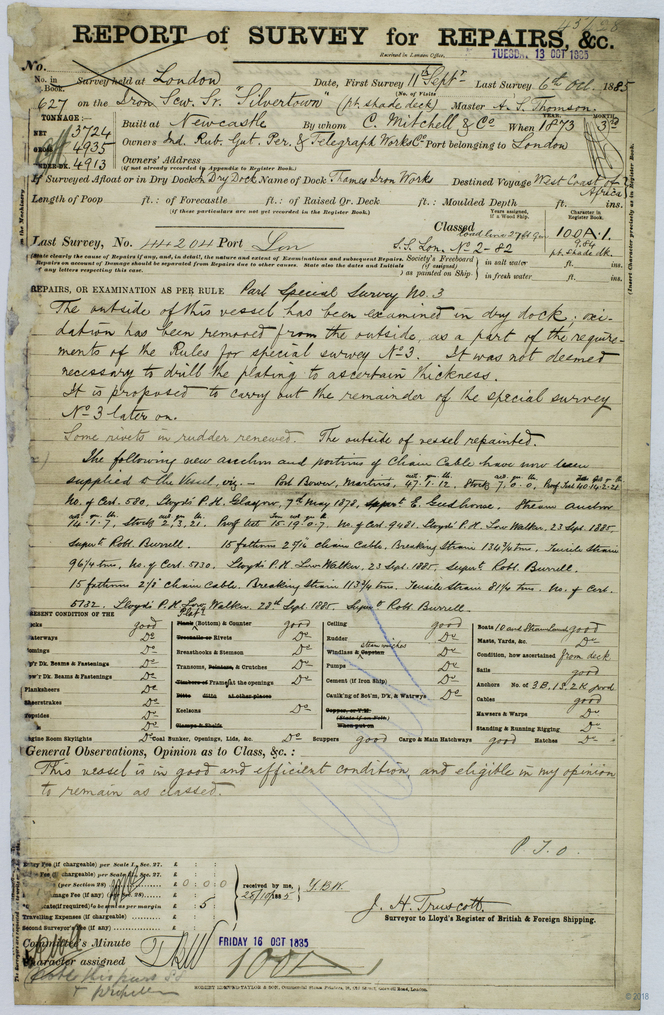 REPORT of SURVEY for REPAIRS, &c.
Received in London Office, TUESDAY 13 OCT 1885
No.
No. in Book. Survey held at London Date, First Survey 11th Septr Last Survey 6th Oct. 1885
(No. of Visits)
627 on the Iron Scw. Sr. "Silvertown" (pt. shade deck) Master A. S. Thomson
TONNAGE:—
NET 3724 Built at Newcastle By whom C. Mitchell & Co When YEAR. 1873 MONTH. 3rd
GROSS 4935 Owners Ind. Rub. Gut. Per. & Telegraph Works Co Port belonging to London
UNDER DK. 4913 Owners' Address
(If not already recorded in Appendix to Register Book.)
If Surveyed Afloat or in Dry Dock In Dry Dock Name of Dock Thames Iron Works Destined Voyage West Coast of Africa
Length of Poop ft.: of Forecastle ft.: of Raised Qr. Deck ft.: Moulded Depth ft. ins.
(If these particulars are not yet recorded in the Register Book.)
Years assigned, if a Wood Ship.
Character in Register Book.
Classed 100A.1.
9.84
pt. shade dk.
Last Survey, No. 44204 Port Lon S.S. Lon. No 2-82
(State clearly the cause of Repairs if any, and, in detail, the nature and extent of Examinations and subsequent Repairs.
Repairs on account of Damage should be separated from Repairs due to other causes. State also the dates and Initials
of any letters respecting this case.
Society's Freeboard (if assigned) as painted on Ship:—
in salt water ft. ins.
in fresh water ft. ins.
REPAIRS, OR EXAMINATION AS PER RULE Part Special Survey No. 3
The outside of this vessel has been examined in dry dock; oxi-
dation has been removed from the outside, as a part of the require-
ments of the Rules for special survey No 3. It was not deemed
necessary to drill the plating to ascertain thickness.
It is proposed to carry out the remainder of the special survey
No 3 later on.
Some rivets in rudder renewed. The outside of vessel repainted.
The following new anchors and portions of Chain Cable have now been
supplied to the Vessel, viz. – Port Bower, Martins, 47.1.12, Stock 7.0.0, Proof Test 40.14.2.21
No. of Cert. 580. Lloyds P.H. Glasgow, 7th May 1878, Supert E. Gudhorse. Stream Anchor
14.1.7, Stock 2.3.21. Proof test 15.19.0.7. No. of Cert. 9481. Lloyds P.H. Low Walker. 23 Sept. 1885.
Supert Robt. Burrell. 15 fathoms 2 5/16 chain Cable. Breaking Strain 134 3/4 tons, Tensile Strain
96 1/4 tons. No. of Cert. 5730. Lloyds P.H. Low Walker. 23 Sept. 1885. Supert Robt. Burrell.
15 fathoms 2 1/8 chain Cable. Breaking Strain 113 3/4 tons. Tensile Strain 81 1/4 tons. No. of Cert.
5732. Lloyds P.H. Low Walker. 28th Sept. 1885. Supert Robt. Burrell.
PRESENT CONDITION OF THE
Decks good
Waterways Do
Comings Do
Upp'r Dk. Beams & Fastenings Do
Low'r Dk. Beams & Fastenings Do
Planksheers Do
Sheerstrakes Do
Topsides Do
Engine Room Skylights Do
Plank (Bottom) & Counter good
Treenails or Rivets Do
Breasthooks & Stemson Do
Transoms, Pointers, & Crutches Do
Timbers of Frame at the openings Do
Ditto ditto at other places
Keelsons Do
Clamps & Shelfs
Coal Bunker, Openings, Lids, &c. Do
Ceiling good
Rudder Do
Windlass & Capstan steam winches Do
Pumps Do
Cement (if Iron Ship) Do
Caulk'g of Bot'm, Dk, & Watrwys Do
Copper, or Y.M.
(State if on Felt.)
When put on
Scuppers good
Cargo & Main Hatchways good
Boats 10 and Steam launch good
Masts, Yards, &c. Do
Condition, how ascertained from deck
Sails good
Anchors No. of 3B.1S.2K good
Cables good
Hawsers & Warps Do
Standing & Running Rigging Do
Hatches Do
General Observations, Opinion as to Class, &c.:
This vessel is in good and efficient condition, and eligible in my opinion
to remain as classed.
P.T.O.
Entry Fee (if chargeable) per Scale I., Sec. 27. £
Fee (if chargeable) per Scale I., Sec. 27. £
(per Section 28) £ 0:0:0
Damage Fee (if any) (per Sec. 28) £
£ : 5
Travelling Expenses (if chargeable) £
Second Surveyor's Fee (if any) £
received by me,
25/10/1885
J. H. Truscott
Surveyor to Lloyd's Register of British & Foreign Shipping.
Committee's Minute FRIDAY 16 OCT 1885
Character assigned 100A1
& propeller
© 2018